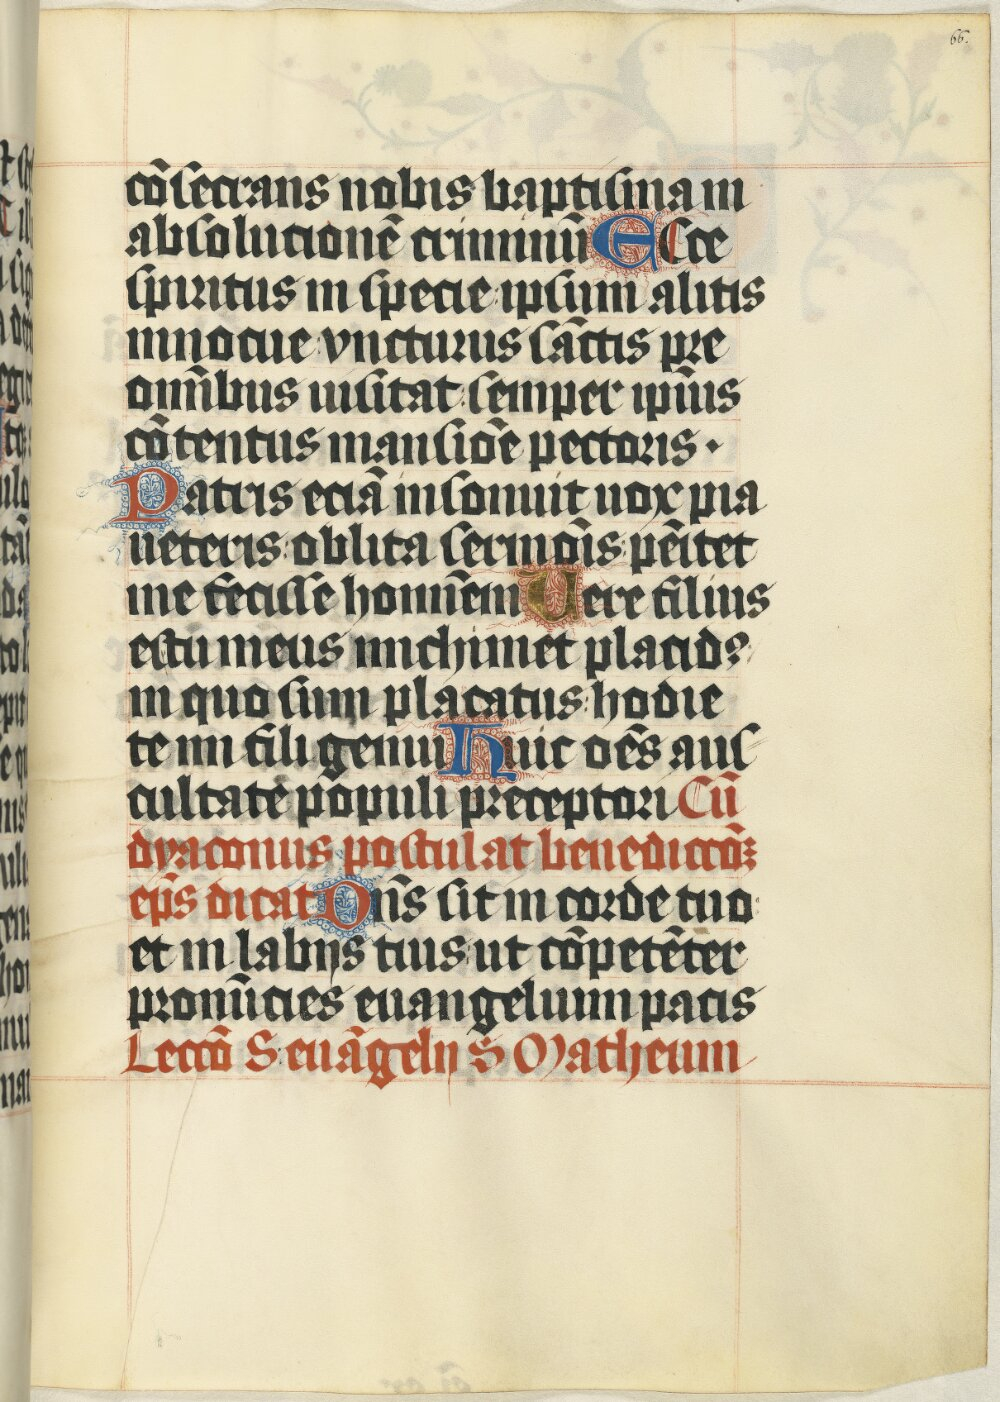 66.
cōsecrans nobis baptisma in
absolucionē criminū Ecce
spiritus in specie ipsum alitis
innocue vncturus sāctis pre
om̄ibus uisitat semper ip̄ius
cōtentus mansiōe pectoris ·
Patris eciā insonuit uox pia
ueteris oblita sermōis pēitet
me fecisse homīem Uere filius
es tu meus michimet placid9
in quo sum placatus hodie
te mi fili genui Huic oēs aus
cultate populi preceptori Cū
dyaconus postulat benediccōꝫ
ep̄s dicat Dn̄s sit in corde tuo
et in labijs tuis ut cōpetēter
pronūcies euangelium pacis
Leccō S. euāgelij S Matheum